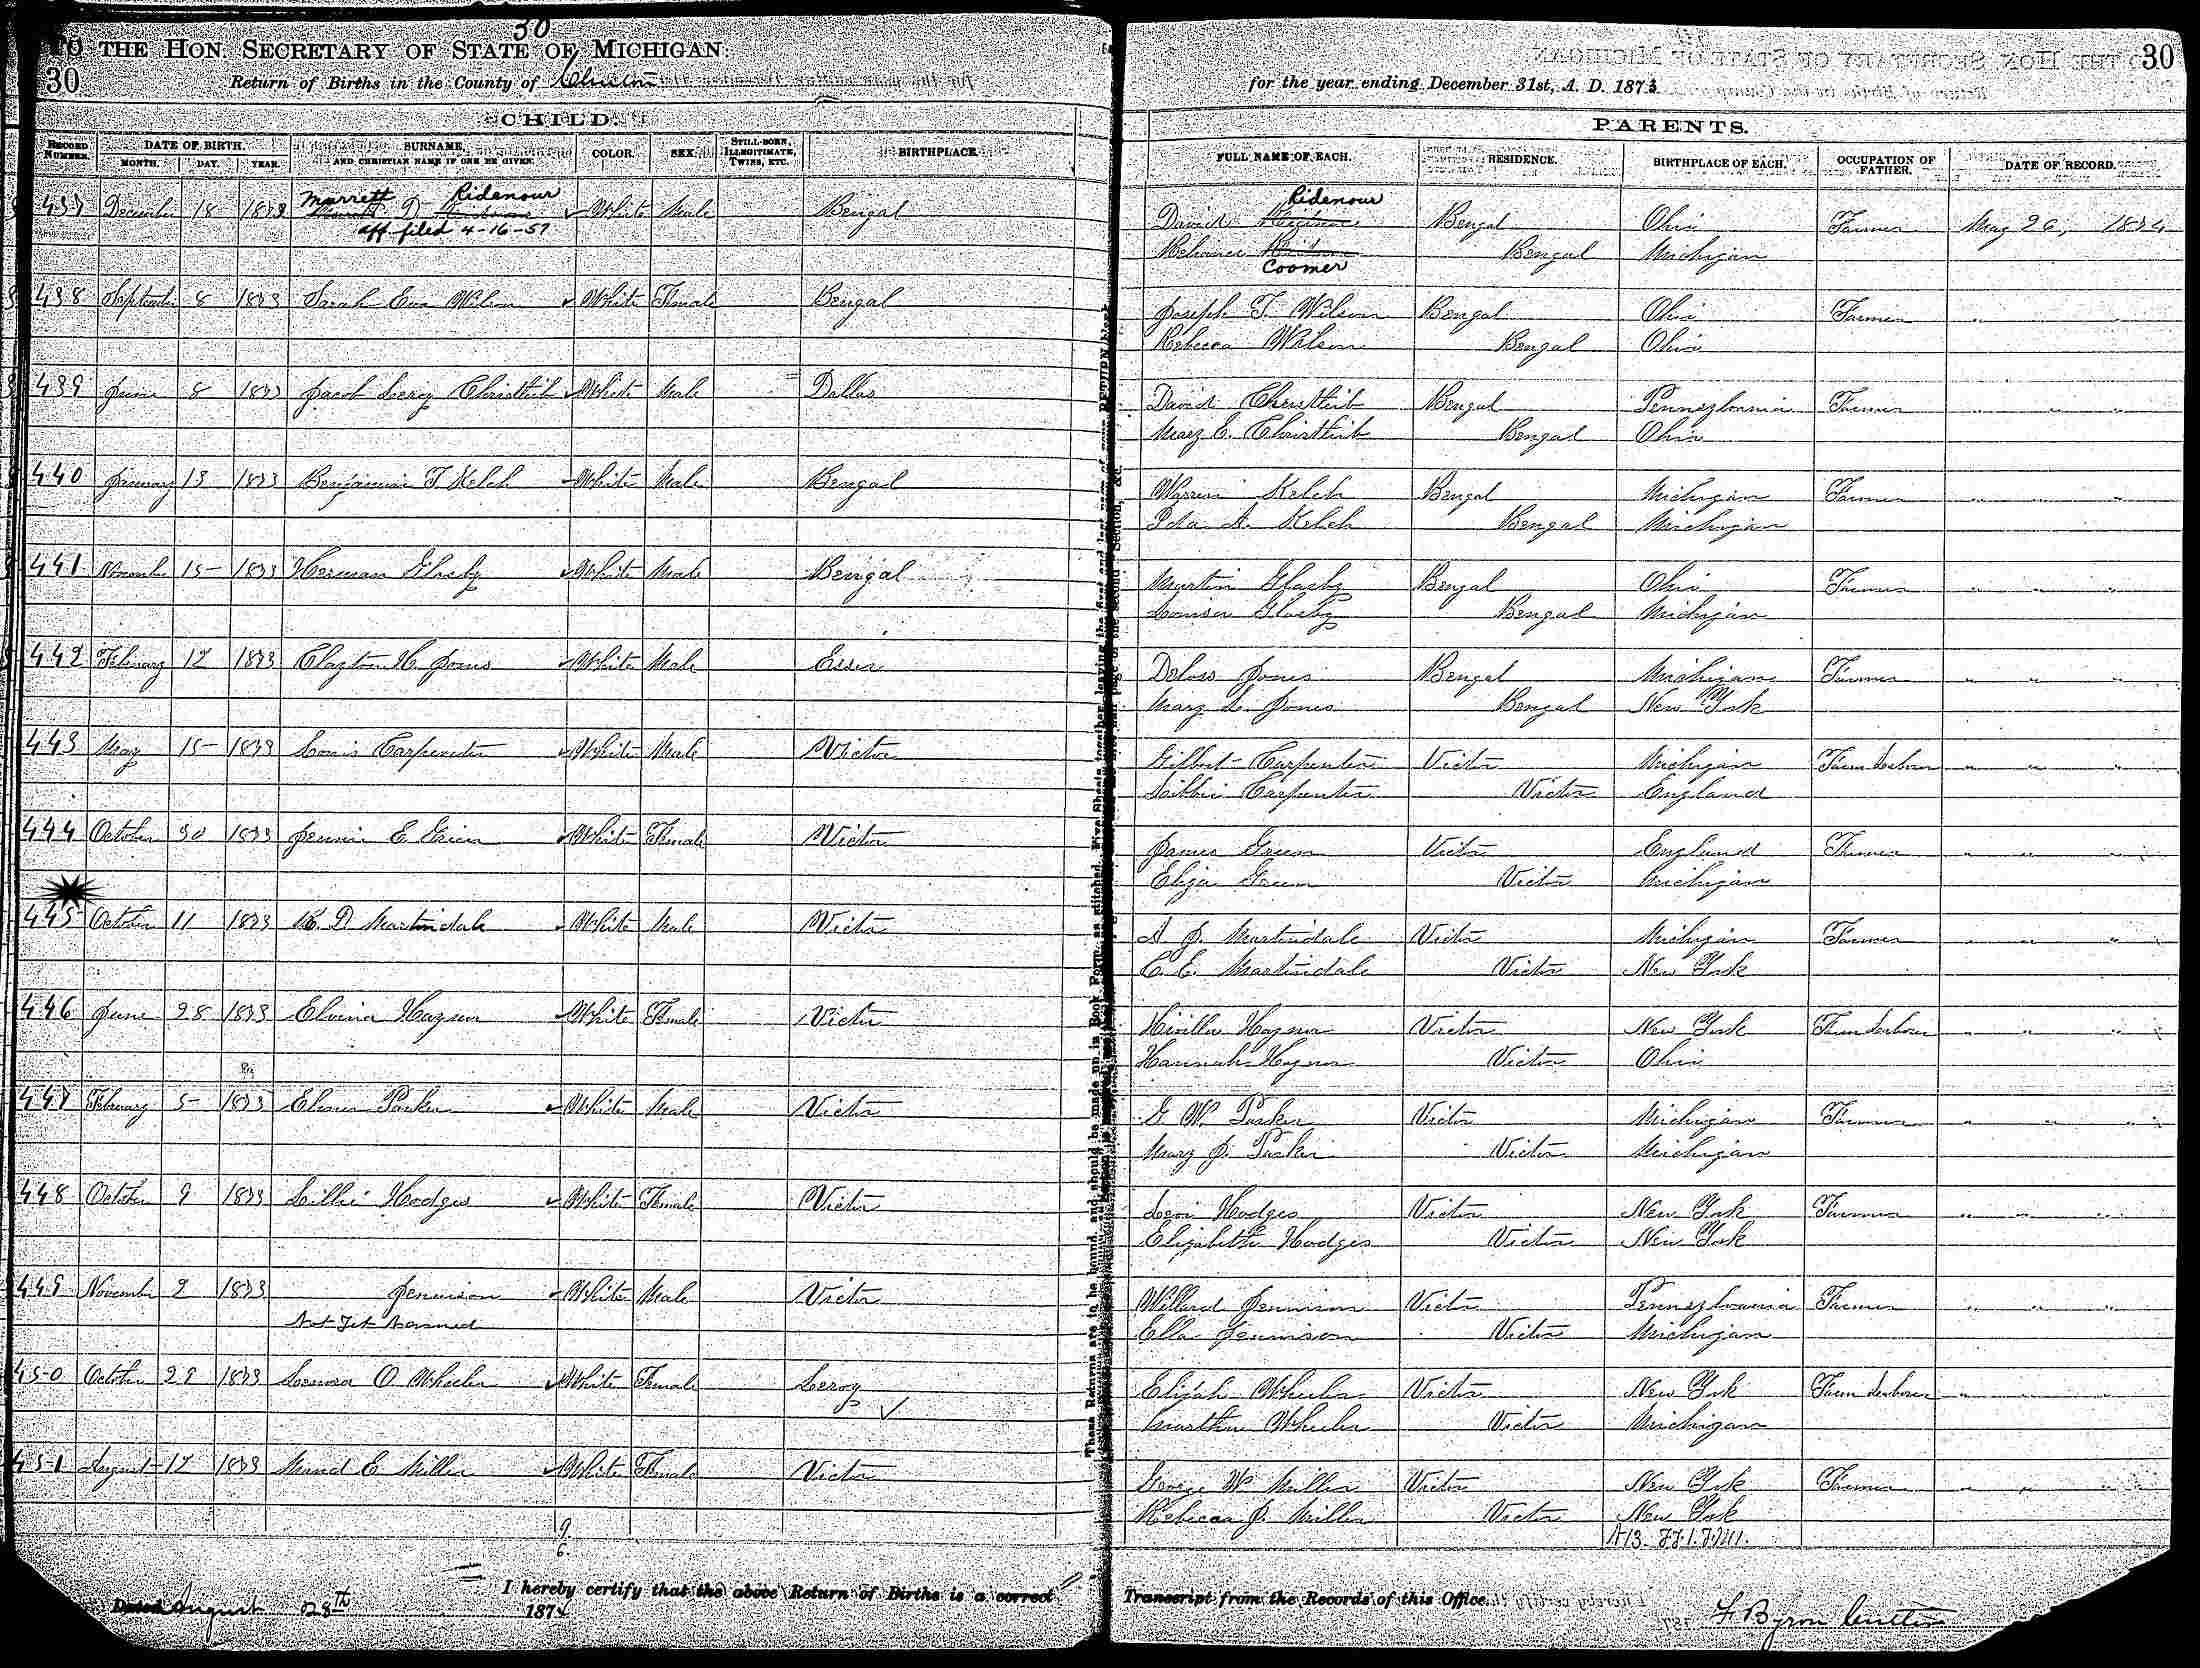 30
TO THE HON. SECRETARY OF STATE OF MICHIGAN:
30
Return of Births in the County of Clinton
CHILD.
RECORD NUMBER. DATE OF BIRTH. MONTH. DAY. YEAR. SURNAME, AND CHRISTIAN NAME IF ONE BE GIVEN. COLOR. SEX. STILL-BORN, ILLEGITIMATE, TWINS, ETC. BIRTHPLACE.
Marrett Ridenour
437 December 18 1873 D White Male Bengal
aff filed 4-16-57
438 September 8 1873 Sarah Eva Wilson White Female Bengal
439 June 8 1873 Jacob Leroy Christlieb White Male Dallas
440 January 13 1873 Benjamin F Kelch White Male Bengal
441 November 15 1873 Herman Glasby White Male Bengal
442 February 12 1873 Clayton H. Jones White Male Essex
443 May 15 1873 Louis Carpenter White Male Victor
444 October 30 1873 Jennie E Green White Female Victor
445 October 11 1873 D Martindale White Male Victor
446 June 28 1873 Elvina Haynor White Female Victor
447 February 5 1873 Elmer Parker White Male Victor
448 October 9 1873 Lillie Hodges White Female Victor
449 November 2 1873 Jennison White Male Victor
Not Yet Named
450 October 29 1873 Lenora O Wheeler White Female Leroy
451 August 12 1873 Maud E Miller White Female Victor
9.
6.
I hereby certify that the above Return of Births is a correct
Dated August 28th 1874
These Returns are to be bound, and should be made up in Book Form, as stitched. Five Sheets together, leaving the first and last page of
30
for the year ending December 31st, A. D. 1873
PARENTS.
FULL NAME OF EACH. RESIDENCE. BIRTHPLACE OF EACH. OCCUPATION OF FATHER. DATE OF RECORD.
Ridenour
David Bengal Ohio Farmer May 26, 1874
Bengal Michigan
Coomer
Joseph T. Wilson Bengal Ohio Farmer " "
Rebecca Wilson Bengal Ohio
David Christlieb Bengal Pennsylvania Farmer " " "
Mary E. Christlieb Bengal Ohio
Warren Kelch Bengal Michigan Farmer " " "
Ida A. Kelch Bengal Michigan
Martin Glasby Bengal Ohio Farmer " " "
Louisa Glasby Bengal Michigan
Delos Jones Bengal Michigan Farmer " " "
Mary L. Jones Bengal New York
Gilbert Carpenter Victor Michigan Farm Laborer " " "
Libbie Carpenter Victor England
James Green Victor England Farmer " " "
Eliza Green Victor Michigan
A J. Martindale Victor Michigan Farmer " " "
C. E. Martindale Victor New York
Haynor Victor New York Farm Laborer " " "
Hannah Haynor Victor Ohio
G. W. Parker Victor Michigan Farmer " " "
Mary J. Parker Victor Michigan
Levi Hodges Victor New York Farmer " " "
Elizabeth Hodges Victor New York
Willard Jennison Victor Pennsylvania Farmer " " "
Ella Jennison Victor Michigan
Elijah Wheeler Victor New York Farm Laborer " " "
Martha Wheeler Victor Michigan
George W. Miller Victor New York Farmer " " "
Rebecca J. Miller Victor New York
Transcript from the Records of this Office.